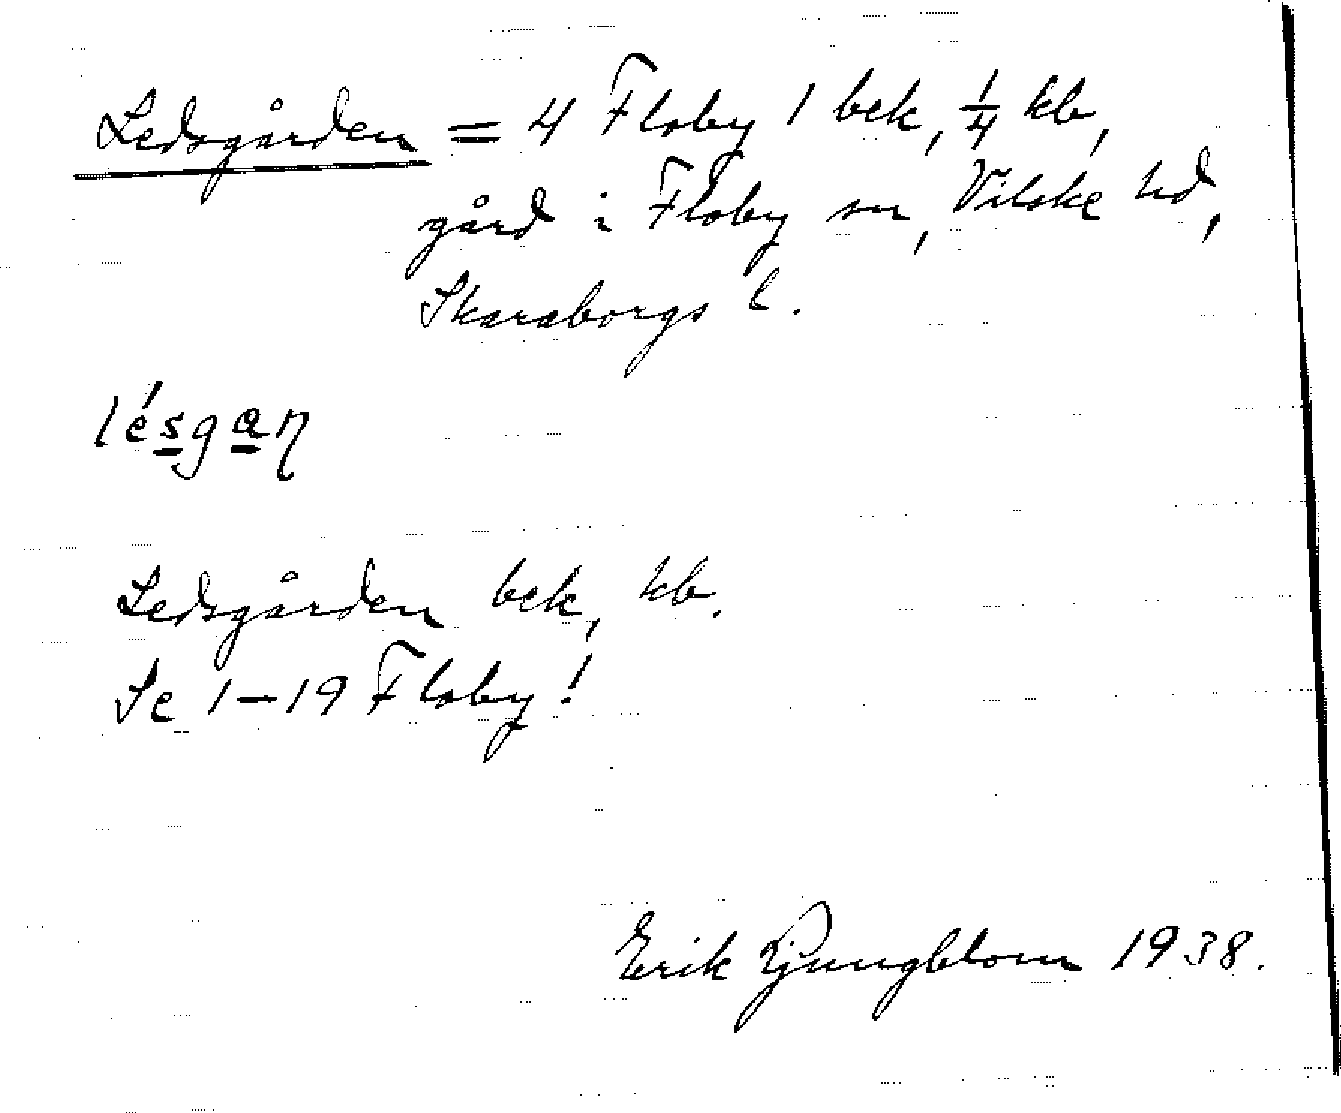 Ledsgården = 4 Floby 1 bek, 1/4 kb,
gård i Floby sn, Vilske hd,
Skaraborgs l.
lésgaɳ
Ledsgården bek, kb.
Se 1-19 Floby!
Erik Ljungblom 1938.